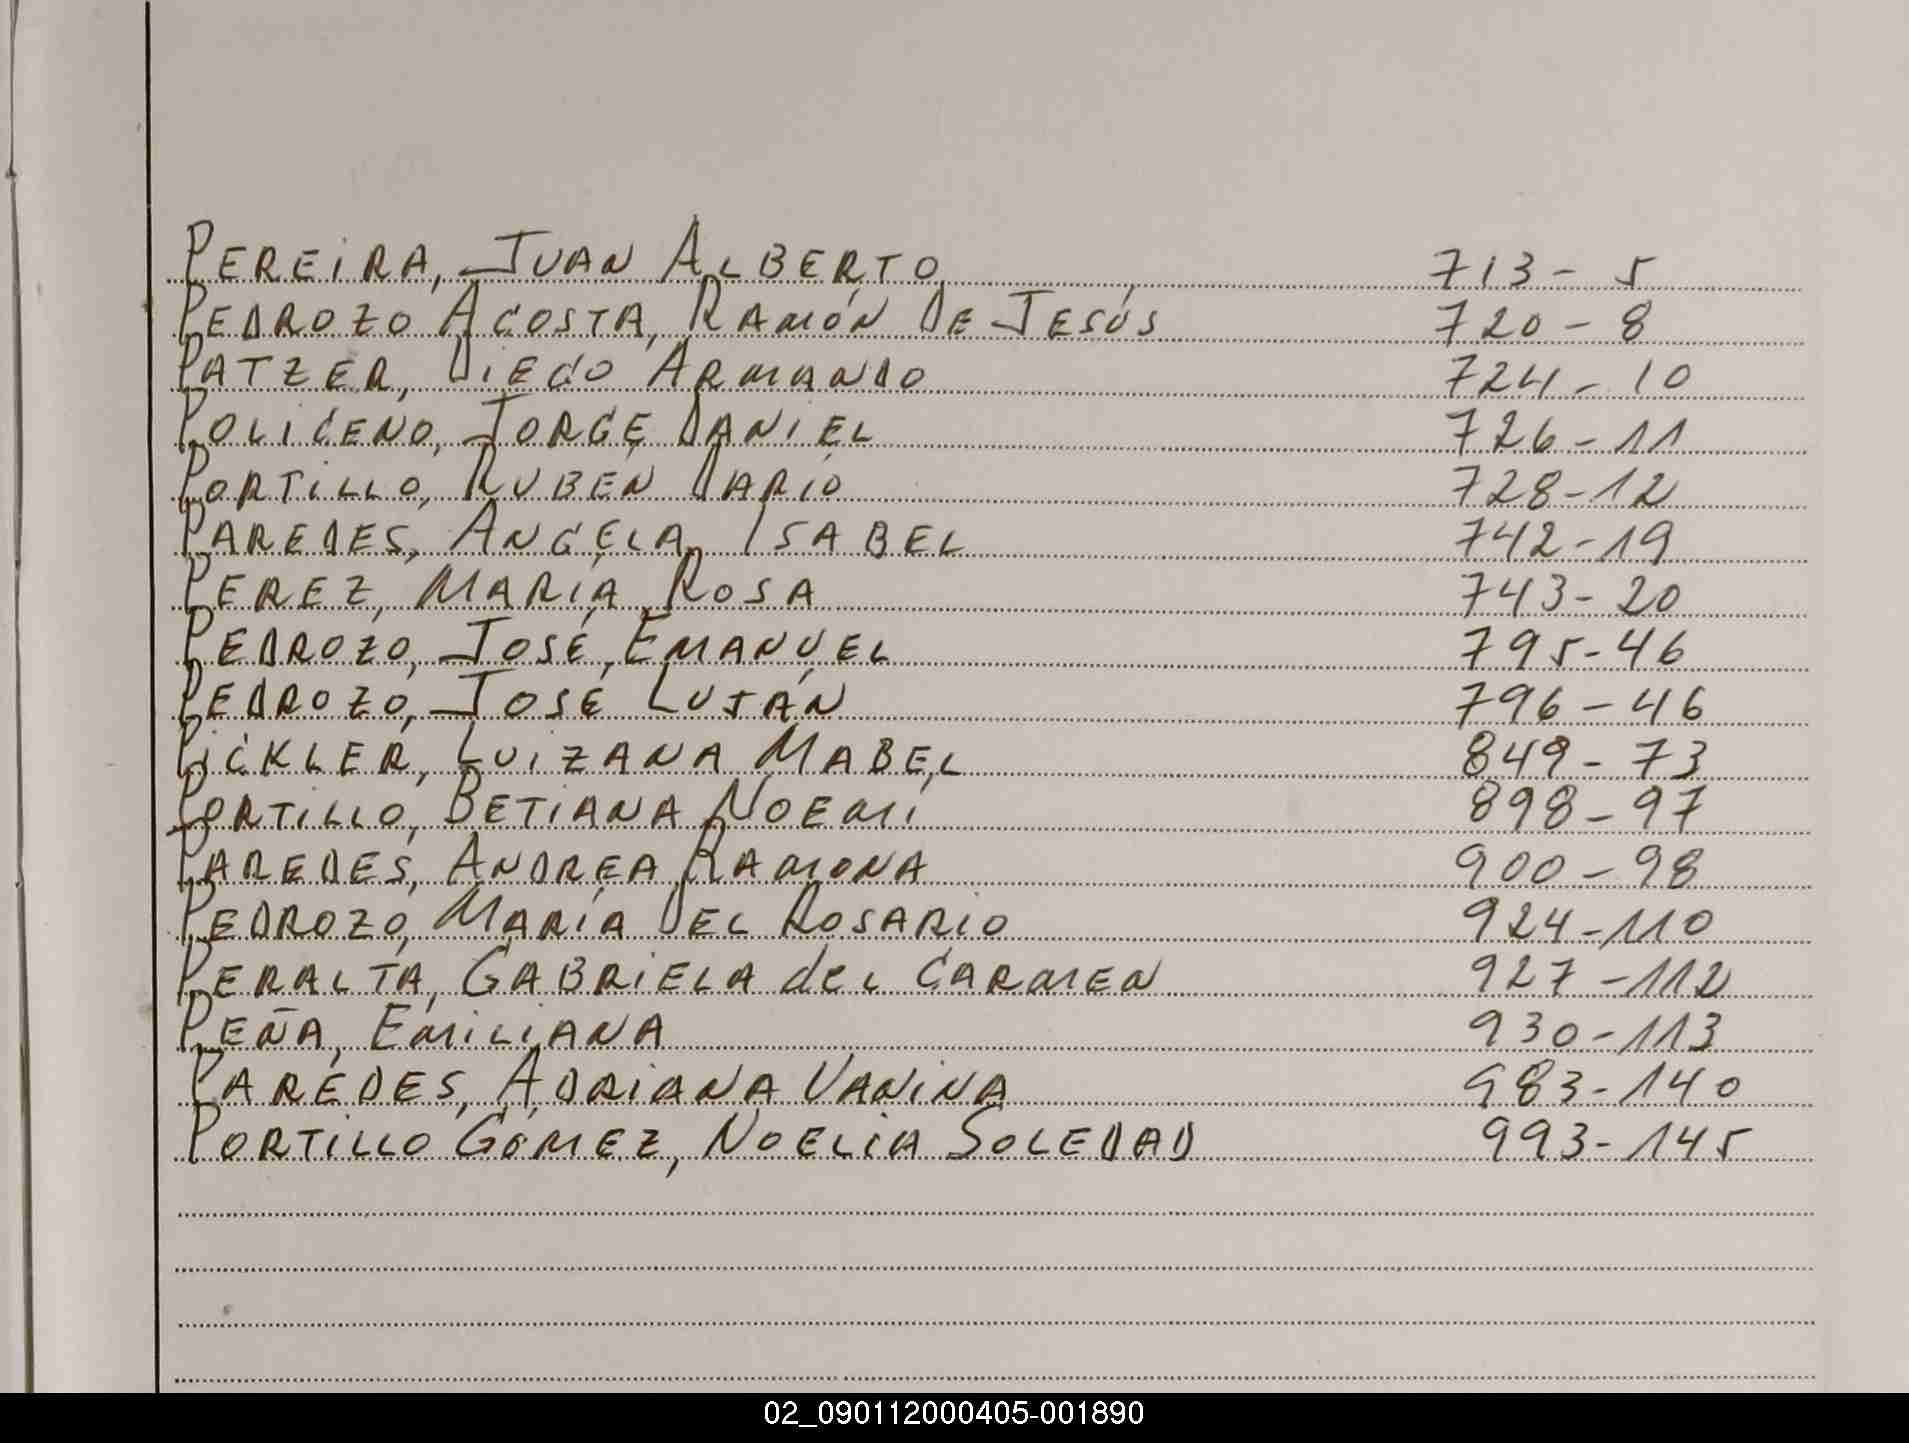 PEREIRA, JUAN ALBERTO 713 - 5
PEDROZO ACOSTA, RAMÓN DE JESÚS 720 - 8
PATZER, DIEGO ARMANDO 724 - 10
POLICENO, JORGE DANIEL 726 - 11
PORTILLO, RUBEN DARIO 728 - 12
PAREDES, ANGELA ISABEL 742 - 19
PEREZ, MARÍA ROSA 743 - 20
PEDROZO, JOSÉ EMANUEL 795 - 46
PEDROZO, JOSÉ LUJÁN 796 - 46
PICKLER, LUIZANA MABEL 849 - 73
PORTILLO, BETIANA NOEMI 898 - 97
PAREDES, ANDREA RAMONA 900 - 98
PEDROZO, MARÍA DEL ROSARIO 924 - 110
PERALTA, GABRIELA del CARMEN 927 - 112
PEÑA, EMILIANA 930 - 113
PAREDES, ADRIANA VANINA 983 - 140
PORTILLO GÓMEZ, NOELIA SOLEDAD 993 - 145
02_090112000405-001890